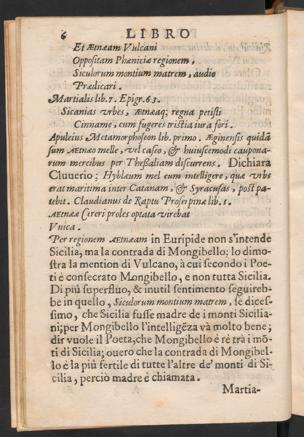 6 LIBRO
Et Ætnæam Vulcani
Oppositam Phœniciæ regionem,
Siculorum montium matrem, audio
Prædicari.
Martialis lib. 7. Epigr. 63.
Sicanias vrbes, ætnæaq; regna petisti
Cinname, cum fugeres tristia iura fori.
Apuleius Metamorphoseon lib. primo, Æginensis quidā
sum Ætnæo melle, vel caseo, & huiuscemodi cauponarum
rum mercibus per Thessaliam discurrens. Dichiara
Cluuerio; Hyblæum mel eum intelligere, quæ vrbs
erat maritima inter Catanam, & Syracusas, post patebit.
tebit. Claudianus de Raptu Proserpinæ lib. 1.
Ætnææ Cereri proles optata virebat
Vnica.
Per regionem ætnæam in Euripide non s'intende
Sicilia, ma la contrada di Mongibello; lo dimostra
stra la mention di Vulcano, à cui secondo i Poeti
ti è consecrato Mongibello, e non tutta Sicilia.
Di più superfluo, & inutil sentimento seguirebbe
be in quello, Siculorum montium matrem, se dicessimo,
simo, che Sicilia fusse madre de i monti Siciliani;
ni; per Mongibello l'intelligēza và molto bene;
dir vuole il Poeta, che Mongibello è rè trà i mōti
ti di Sicilia; ouero che la contrada di Mongibello
lo è la più fertile di tutte l'altre de' monti di Sicilia,
cilia, perciò madre è chiamata.
Martia-